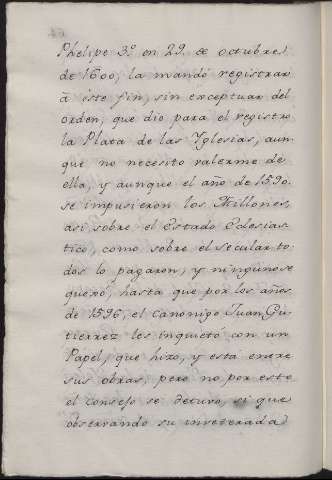 Phelipe 3.º en 29. de octubre
de 1600, la mandó registrar
à este fin, sin exceptuar del
orden, que dio para el registro
la Plata de las Yglesias, aun-
que no necesito valerme de
ella, y aunque el año de 1590.
se impusieron los Millones,
asi sobre el Estado Eclesias-
tico, como sobre el secular to-
dos lo pagaron, y ninguno se
quexó, hasta que por los años
de 1596, el canonigo Juan Gu-
tierrez les inquietó con un
Papel, que hizo, y està entre
sus obras, pero no por esto
el consejo se detuvo, si que
observando su inveterada